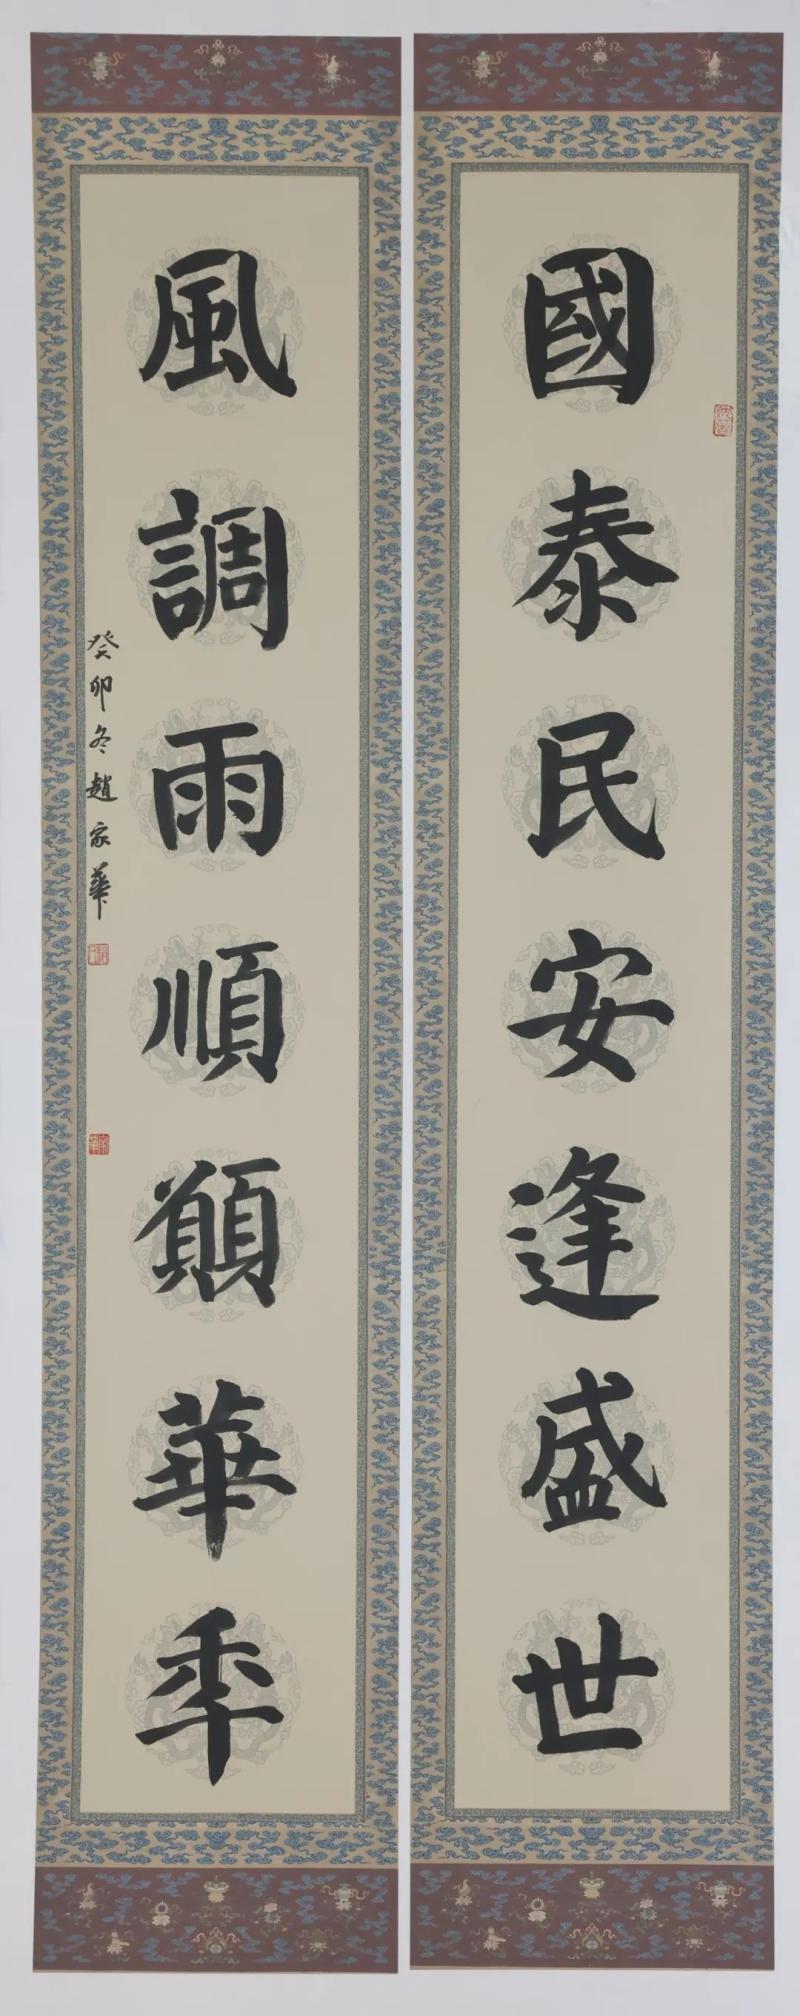 國泰民安逢盛世
風調雨順願華秊
癸卯冬趙家華